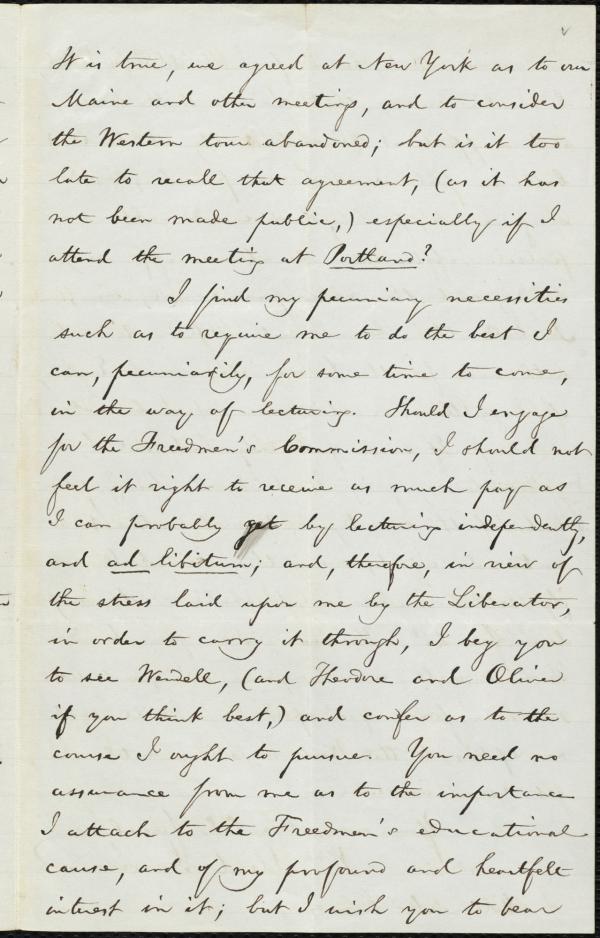 It is true, we agreed at New York as to our
Maine and other meetings, and to consider
the Western tour abandoned; but is it too
late to recall that agreement, (as it has
not been made public,) especially if I
attend the meeting at Portland?
I find my pecuniary necessities
such as to require me to do the best I
can, pecuniarily, for some time to come,
in the way of lecturing. Should I engage
for the Freedmen's Commission, I should not
feel it right to receive as much pay as
I can probably get by lecturing independently,
and ad libitum; and, therefore, in view of
the stress laid upon me by the Liberator,
in order to carry it through, I beg you
to see Wendell, (and Theodore and Oliver
if you think best,) and confer as to the
course I ought to pursue. You need no
assurance from me as to the importance
I attach to the Freedmen's educational
cause, and of my profound and heartfelt
interest in it; but I wish you to bear